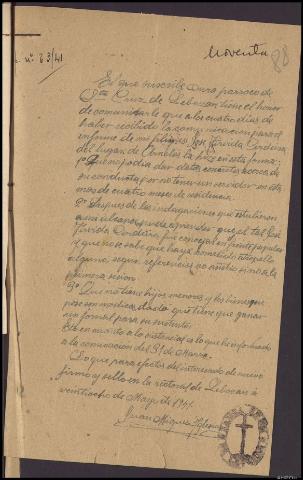 Noventa
88
nº 23/41
El que suscribe cura parroco de
Sta Cruz de Lebozan tiene el honor
de comunicarle que a los cuatro dias de
haber recibido la comunicacion para el
informe de mi feligres José Garrida Cordeira
del lugar de la hizo en esta forma:
1º Que no podia dar datos concretos acerca de
su conducta por no tener un servidor en esta
mas de cuatro meses de residencia.
2º Despues de las indagaciones que estubieron
a mi alcance pude aprender que el tal José
Garrida Cordeira fue concejal en frente popular
y que no se sabe que haya cometido atropello
alguno, segun referencias no cambio sino a la
primera señon
3º Que no tiene hijos menores y los bienes que
posee son modica dado que tiene que ganar
un jornal para su sustento.
Es en cuanto a lo ostensible a lo que he informado
a la comunicacion del 31 de Marzo.
Lo que para efectos del interesado de nuevo
firmo y sello en la rectoral de Lebozan a
veintiocho de Mayo de 1941.
Juan Miguez Iglesias